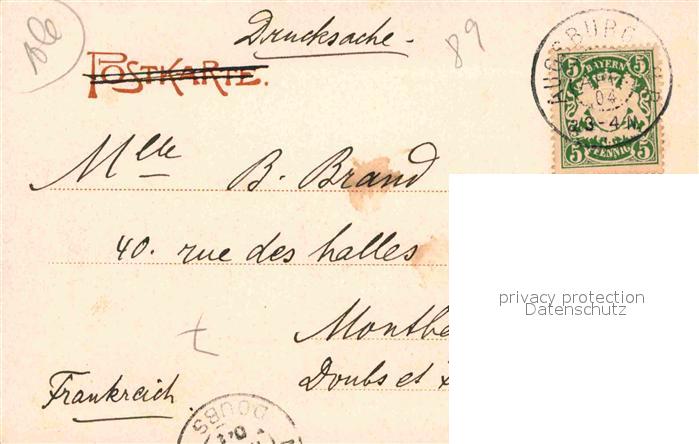 Drucksache.
89
POSTKARTE.
AUGSBURG
04
3-4 N.
5 BAYERN 5
5 PFENNIG 5
Mlle B. Brand
40. rue des halles
privacy protection
Datenschutz
Doubs et
Frankreich.
DOUBS